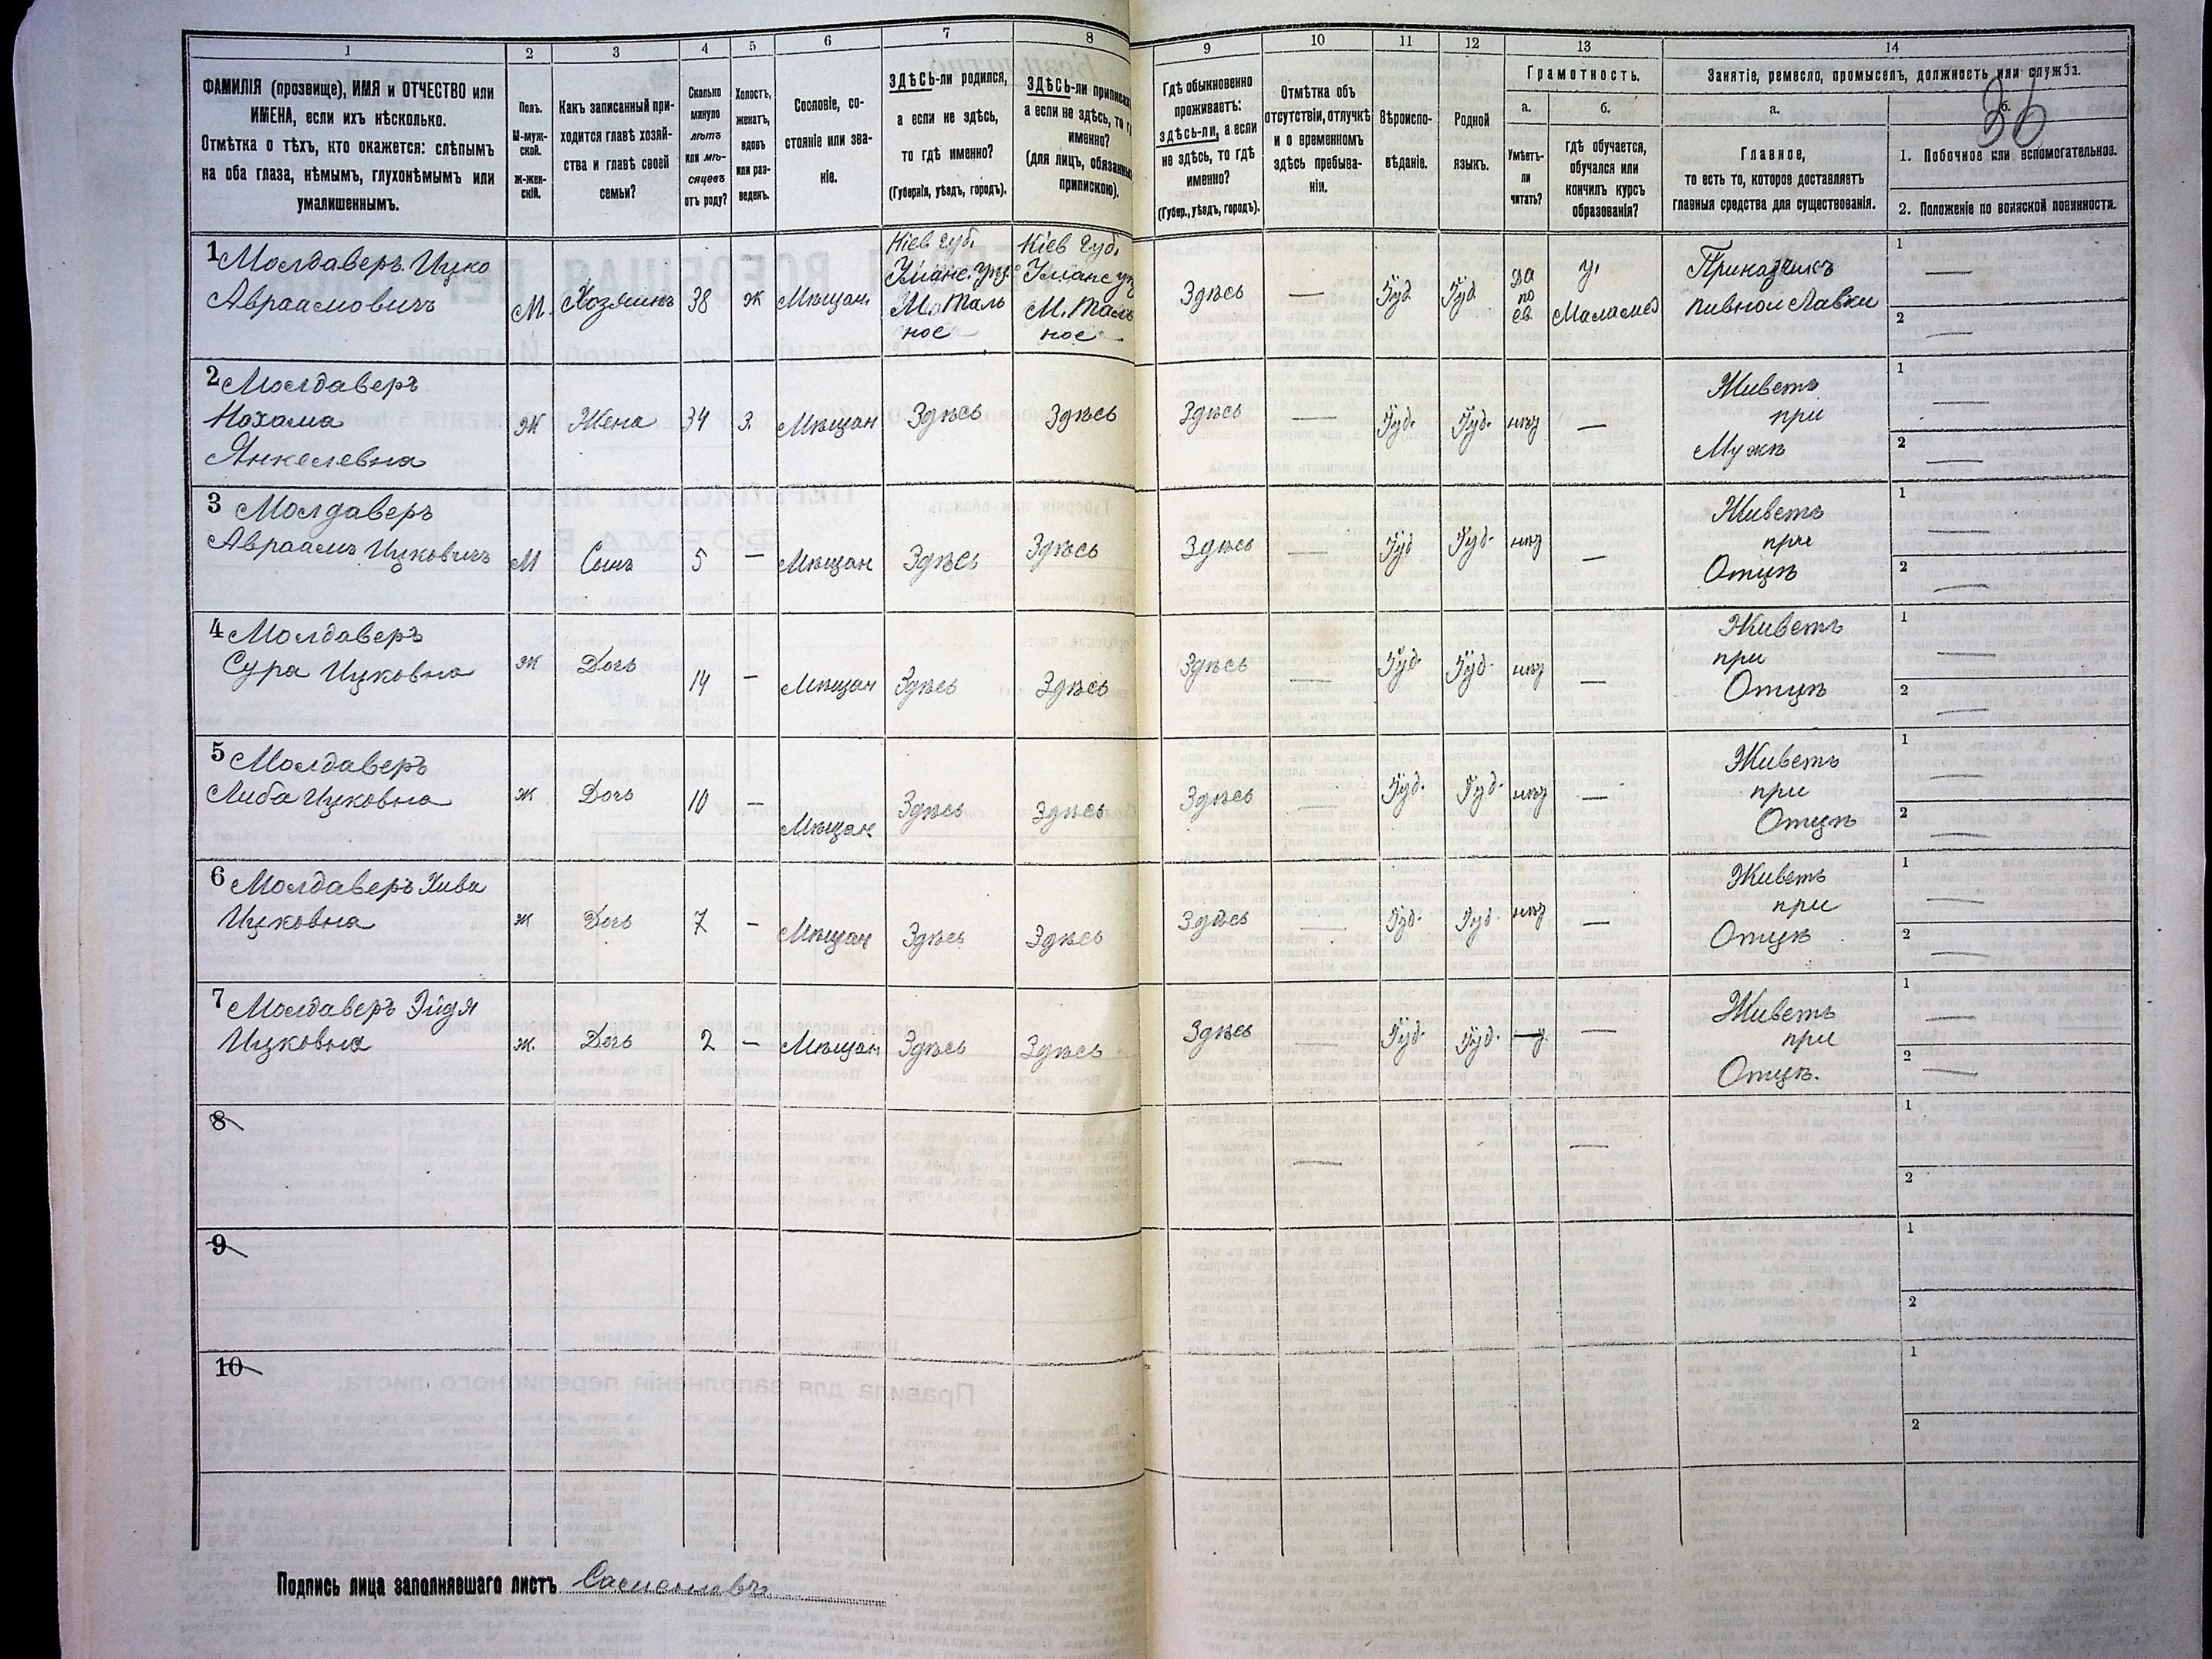 1
2
3
4
5
6
7
8
9
10
11
12
13
14
ФАМИЛІЯ (прозвище), ИМЯ и ОТЧЕСТВО или
ИМЕНА, если ихъ нѣсколько.
Отмѣтка о тѣхъ, кто окажется: слѣпымъ
на оба глаза, нѣмымъ, глухонѣмымъ или
умалишеннымъ.
Полъ.
М-муж-
ской.
ж-жен-
скій.
Какъ записанный при-
ходится главѣ хозяй-
ства и главѣ своей
семьи?
Сколько
минуло
лѣтъ
или мѣ-
сяцевъ
отъ роду?
Холостъ,
женатъ,
вдовъ
или раз-
веденъ.
Сословіе, со-
стояніе или зва-
ніе.
ЗДѢСЬ-ли родился,
а если не здѣсь,
то гдѣ именно?
(Губернія, уѣздъ, городъ).
ЗДѢСЬ-ли приписанъ
а если не здѣсь, то гдѣ
именно?
(для лицъ, обязанныхъ
припискою).
Гдѣ обыкновенно
проживаетъ:
здѣсь-ли, а если
не здѣсь, то гдѣ
именно?
(Губер., уѣздъ, городъ).
Отмѣтка объ
отсутствіи, отлучкѣ
и о временномъ
здѣсь пребыва-
ніи.
Вѣроиспо-
вѣданіе.
Родной
языкъ.
Грамотность.
а.
Умѣетъ-
ли
читать?
б.
гдѣ обучается,
обучался или
кончилъ курсъ
образованія?
Занятіе, ремесло, промыселъ, должность или служба.
а.
Главное,
то есть то, которое доставляетъ
главныя средства для существованія.
б.
36
1. Побочное или вспомогательное.
2. Положеніе по воинской повинности.
1 Молдаверъ Ицко
Авраамовичъ
М.
Хозяинъ
38
ж
Мѣщан.
Кіев губ.
Уманс. уѣз
М. Таль
ное
Кіев губ.
Уманс уѣз
М. Таль
ное
Здѣсь
—
Іуд.
Іуд.
да
по
ев.
у.
Маламед
Приказчикъ
пивной Лавки
1 —
2 —
2 Молдаверъ
Нохама
Янкелевна
Ж
Жена
34
З.
Мѣщан
Здѣсь
Здѣсь
Здѣсь
—
Іуд.
Іуд.
нѣт
—
Живетъ
при
Мужѣ
1 —
2 —
3 Молдаверъ
Авраамъ Ицковичъ
М
Сынъ
5
—
Мѣщан
Здѣсь
Здѣсь
Здѣсь
—
Іуд
Іуд.
нѣт
—
Живетъ
при
Отцѣ
1 —
2 —
4 Молдаверъ
Сура Ицковна
Ж
Дочь
14
—
Мѣщан
Здѣсь
Здѣсь
Здѣсь
—
Іуд.
Іуд.
нѣт
—
Живетъ
при
Отцѣ
1 —
2 —
5 Молдаверъ
Либа Ицковна
Ж
Дочь
10
—
Мѣщан
Здѣсь
Здѣсь
Здѣсь
—
Іуд.
Іуд.
нѣт
—
Живетъ
при
Отцѣ
1 —
2 —
6 Молдаверъ Хива
Ицковна
Ж
Дочь
7
—
Мѣщан
Здѣсь
Здѣсь
Здѣсь
—
Іуд.
Іуд.
нѣт
—
Живетъ
при
Отцѣ
1 —
2 —
7 Молдаверъ Эйдя
Ицковна
Ж.
Дочь
2
—
Мѣщан
Здѣсь
Здѣсь
Здѣсь
—
Іуд.
Іуд.
—
—
Живетъ
при
Отцѣ.
1 —
2 —
8
—
—
1
2
9
1
2
10
1
2
Подпись лица заполнявшаго листъ